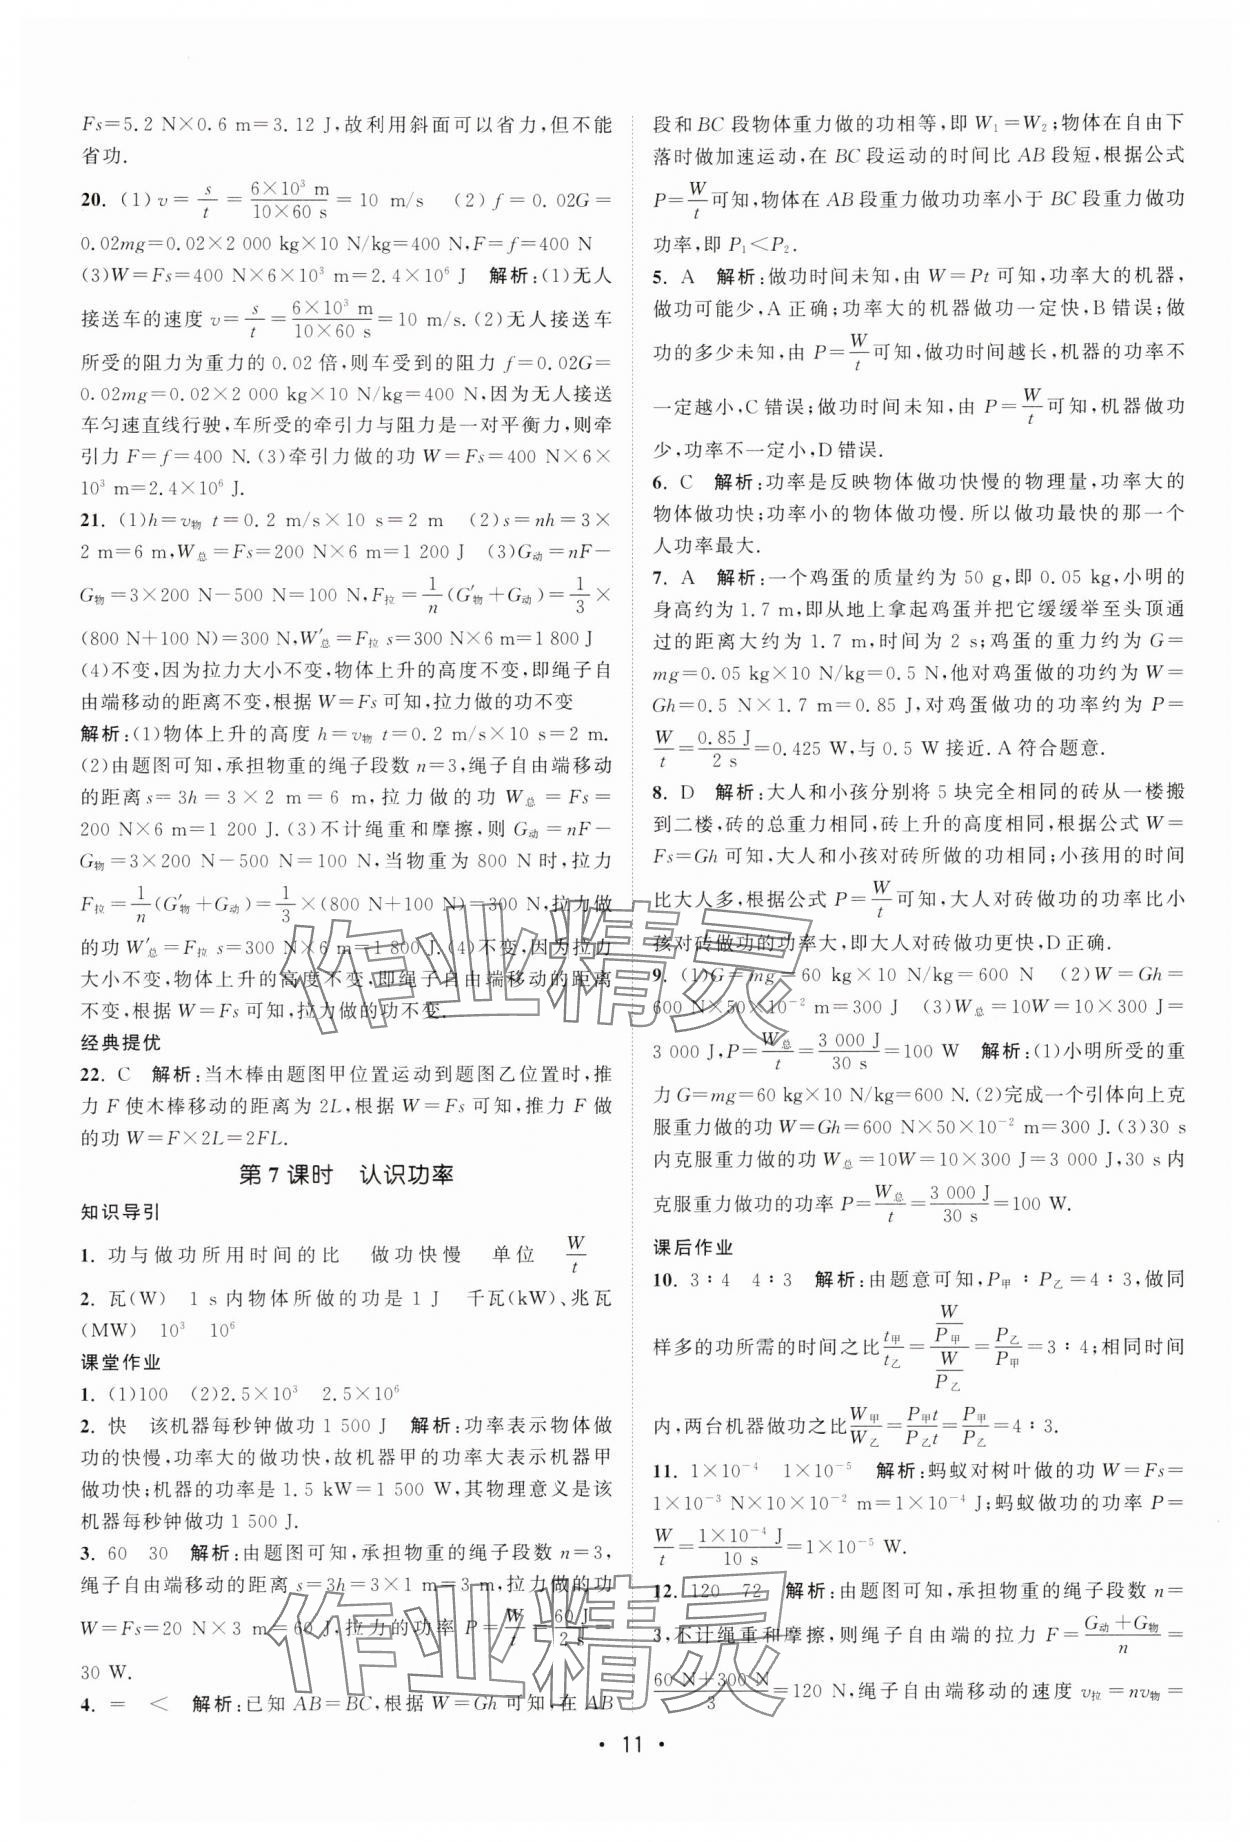 Fs=5.2 N×0.6 m=3.12 J,故利用斜面可以省力,但不能
省功.
20. (1)v=s/t=6×10³ m/10×60 s=10 m/s (2)f=0.02G=
0.02mg=0.02×2 000 kg×10 N/kg=400 N,F=f=400 N
(3)W=Fs=400 N×6×10³ m=2.4×10⁶ J 解析:(1)无人
接送车的速度 v=s/t=6×10³ m/10×60 s=10 m/s.(2)无人接送车
所受的阻力为重力的 0.02 倍,则车受到的阻力 f=0.02G=
0.02mg=0.02×2 000 kg×10 N/kg=400 N,因为无人接送
车匀速直线行驶,车所受的牵引力与阻力是一对平衡力,则牵
引力 F=f=400 N.(3)牵引力做的功 W=Fs=400 N×6×
10³ m=2.4×10⁶ J.
21. (1)h=v物 t=0.2 m/s×10 s=2 m (2)s=nh=3×
2 m=6 m,W总=Fs=200 N×6 m=1 200 J (3)G动=nF-
G物=3×200 N-500 N=100 N,F拉=1/n(G′物+G动)=1/3×
(800 N+100 N)=300 N,W′总=F拉 s=300 N×6 m=1 800 J
(4)不变,因为拉力大小不变,物体上升的高度不变,即绳子自
由端移动的距离不变,根据 W=Fs 可知,拉力做的功不变
解析:(1)物体上升的高度 h=v物 t=0.2 m/s×10 s=2 m.
(2)由题图可知,承担物重的绳子段数 n=3,绳子自由端移动
的距离 s=3h=3×2 m=6 m,拉力做的功 W总=Fs=
200 N×6 m=1 200 J.(3)不计绳重和摩擦,则 G动=nF-
G物=3×200 N-500 N=100 N,当物重为 800 N 时,拉力
F拉=1/n(G′物+G动)=1/3×(800 N+100 N)=300 N,拉力做
的功 W′总=F拉 s=300 N×6 m=1 800 J.(4)不变,因为拉力
大小不变,物体上升的高度不变,即绳子自由端移动的距离
不变,根据 W=Fs 可知,拉力做的功不变.
经典提优
22. C 解析:当木棒由题图甲位置运动到题图乙位置时,推
力 F 使木棒移动的距离为 2L,根据 W=Fs 可知,推力 F 做
的功 W=F×2L=2FL.
第 7 课时 认识功率
知识导引
1. 功与做功所用时间的比 做功快慢 单位 W/t
2. 瓦(W) 1 s 内物体所做的功是 1 J 千瓦(kW)、兆瓦
(MW) 10³ 10⁶
课堂作业
1. (1)100 (2)2.5×10³ 2.5×10⁶
2. 快 该机器每秒钟做功 1 500 J 解析:功率表示物体做
功的快慢,功率大的做功快,故机器甲的功率大表示机器甲
做功快;机器的功率是 1.5 kW=1 500 W,其物理意义是该
机器每秒钟做功 1 500 J.
3. 60 30 解析:由题图可知,承担物重的绳子段数 n=3,
绳子自由端移动的距离 s=3h=3×1 m=3 m,拉力做的功
W=Fs=20 N×3 m=60 J,拉力的功率 P=W/t=60 J/2 s=
30 W.
4. = < 解析:已知 AB=BC,根据 W=Gh 可知,在 AB
段和 BC 段物体重力做的功相等,即 W₁=W₂;物体在自由下
落时做加速运动,在 BC 段运动的时间比 AB 段短,根据公式
P=W/t可知,物体在 AB 段重力做功功率小于 BC 段重力做功
功率,即 P₁<P₂.
5. A 解析:做功时间未知,由 W=Pt 可知,功率大的机器,
做功可能少,A 正确;功率大的机器做功一定快,B 错误;做
功的多少未知,由 P=W/t可知,做功时间越长,机器的功率不
一定越小,C 错误;做功时间未知,由 P=W/t可知,机器做功
少,功率不一定小,D 错误.
6. C 解析:功率是反映物体做功快慢的物理量,功率大的
物体做功快;功率小的物体做功慢.所以做功最快的那一个
人功率最大.
7. A 解析:一个鸡蛋的质量约为 50 g,即 0.05 kg,小明的
身高约为 1.7 m,即从地上拿起鸡蛋并把它缓缓举至头顶通
过的距离大约为 1.7 m,时间为 2 s;鸡蛋的重力约为 G=
mg=0.05 kg×10 N/kg=0.5 N,他对鸡蛋做的功约为 W=
Gh=0.5 N×1.7 m=0.85 J,对鸡蛋做功的功率约为 P=
W/t=0.85 J/2 s=0.425 W,与 0.5 W 接近.A 符合题意.
8. D 解析:大人和小孩分别将 5 块完全相同的砖从一楼搬
到二楼,砖的总重力相同,砖上升的高度相同,根据公式 W=
Fs=Gh 可知,大人和小孩对砖所做的功相同;小孩用的时间
比大人多,根据公式 P=W/t可知,大人对砖做功的功率比小
孩对砖做功的功率大,即大人对砖做功更快,D 正确.
9. (1)G=mg=60 kg×10 N/kg=600 N (2)W=Gh=
600 N×50×10⁻² m=300 J (3)W总=10W=10×300 J=
3 000 J,P=W总/t=3 000 J/30 s=100 W 解析:(1)小明所受的重
力 G=mg=60 kg×10 N/kg=600 N.(2)完成一个引体向上克
服重力做的功 W=Gh=600 N×50×10⁻² m=300 J.(3)30 s
内克服重力做的功 W总=10W=10×300 J=3 000 J,30 s 内
克服重力做功的功率 P=W总/t=3 000 J/30 s=100 W.
课后作业
10. 3∶4 4∶3 解析:由题意可知,P甲∶P乙=4∶3,做同
样多的功所需的时间之比t甲/t乙=(W/P甲)/(W/P乙)=P乙/P甲=3∶4;相同时间
内,两台机器做功之比W甲/W乙=P甲t/P乙t=P甲/P乙=4∶3.
11. 1×10⁻⁴ 1×10⁻⁵ 解析:蚂蚁对树叶做的功 W=Fs=
1×10⁻³ N×10×10⁻² m=1×10⁻⁴ J;蚂蚁做功的功率 P=
W/t=1×10⁻⁴ J/10 s=1×10⁻⁵ W.
12. 120 72 解析:由题图可知,承担物重的绳子段数 n=
3,不计绳重和摩擦,则绳子自由端的拉力 F=G动+G物/n=
60 N+300 N/3=120 N,绳子自由端移动的速度 v拉=nv物=
• 11 •
作业精灵
作业精灵